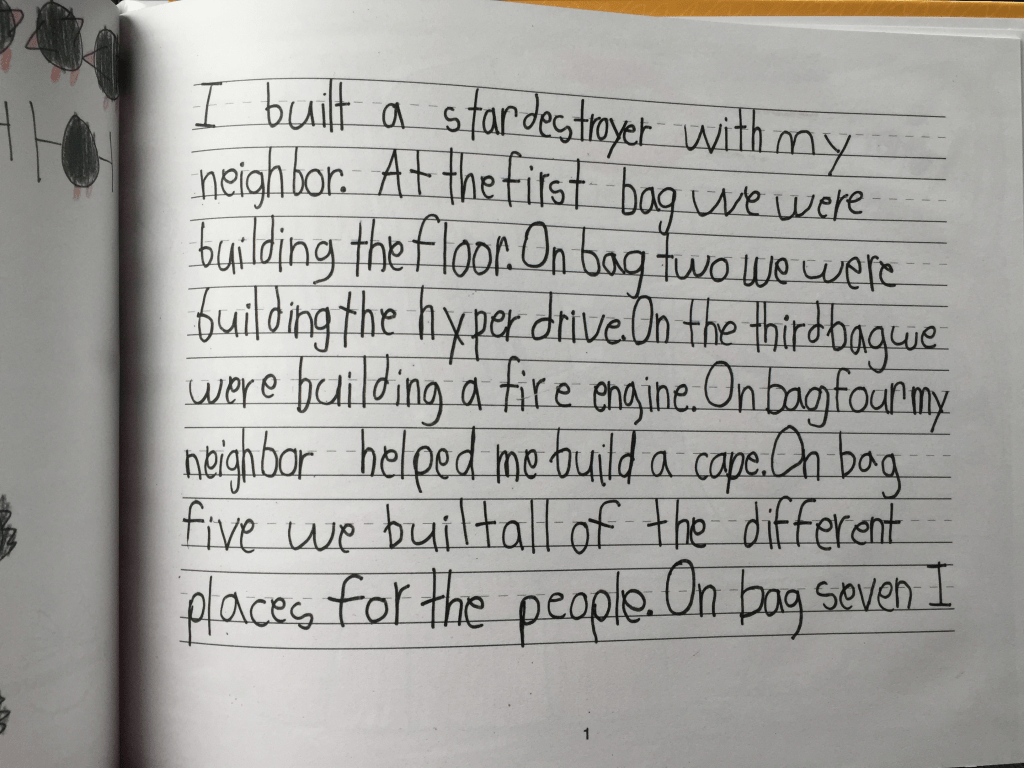 I built a stardestroyer with my
neighbor. At the first bag we were
building the floor. On bag two we were
building the hyper drive. On the third bag we
were building a fire engine. On bag four my
neighbor helped me build a cape. On bag
five we built all of the different
places for the people. On bag seven I
1